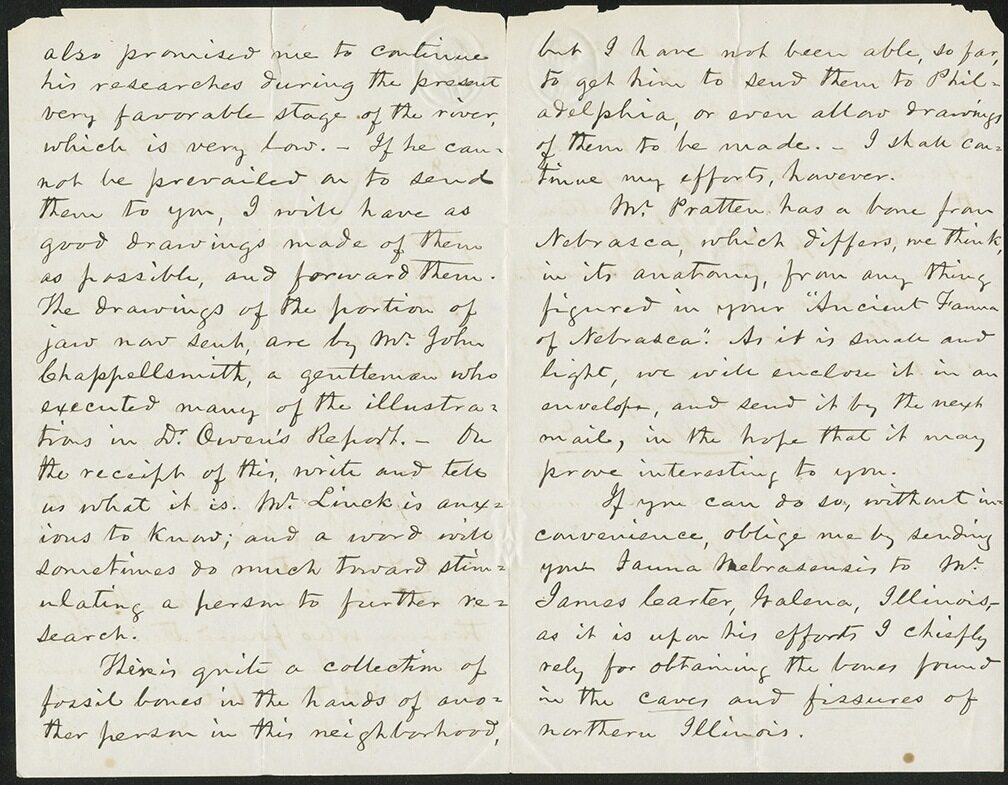 also promised me to continue
his researches during the present
very favorable stage of the river,
which is very low. — If he can=
not be prevailed on to send
them to you, I will have as
good drawings made of them
as possible, and forward them.
The drawings of the portion of
jaw now sent, are by Mr. John
Chappellsmith, a gentleman who
executed many of the illustra=
tions in Dr. Owen's Report. — On
the receipt of this, write and tell
us what it is. Mr. Linck is anx=
ious to know; and a word will
sometimes do much toward stim=
ulating a person to further re=
search.
There is quite a collection of
fossil bones in the hands of ano=
ther person in this neighborhood,
but I have not been able, so far,
to get him to send them to Phil=
adelphia, or even allow drawings
of them to be made. — I shall con=
tinue my efforts, however.
Mr. Pratten has a bone from
Nebrasca, which differs, we think,
in its anatomy, from any thing
figured in your "Ancient Fauna
of Nebrasca". As it is small and
light, we will enclose it in an
envelope, and send it by the next
mail, in the hope that it may
prove interesting to you.
If you can do so, without in=
convenience, oblige me by sending
your Fauna Nebrasensis to Mr.
James Carter, Galena, Illinois,
as it is upon his efforts I chiefly
rely for obtaining the bones found
in the caves and fissures of
northern Illinois.